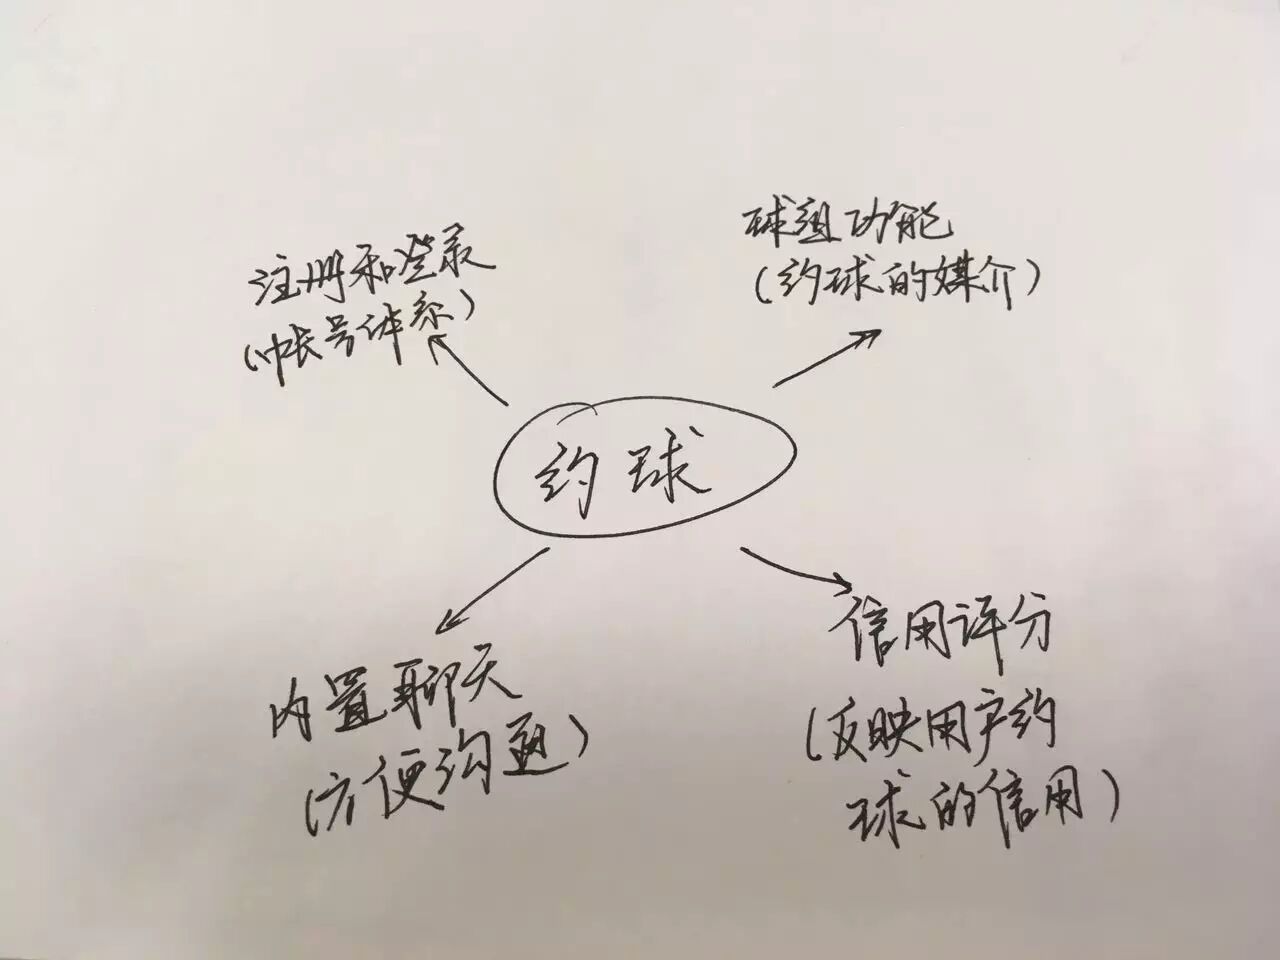 注册和登录
(帐号体系)
球组功能
(约球的媒介)
约球
内置聊天
(方便沟通)
信用评分
(反映用户约
球的信用)